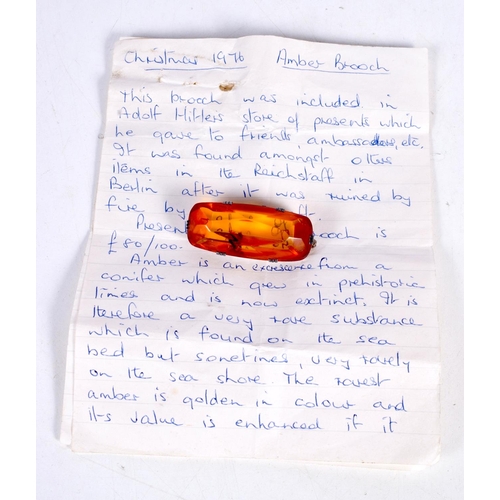 Christmas 1976 Amber Brooch
This brooch was included in
Adolf Hitlers store of presents which
he gave to friends, ambassadors, etc.
It was found amongst others
items in the Reichstaff in
Berlin after it was ruined by
fire by
Present brooch is
£80/100.
Amber is an excresence from a
conifer which grew in prehistoric
times and is now extinct. It is
therefore a very rare substance
which is found on the sea
bed but sometimes, very rarely
on the sea shore. The rarest
amber is golden in colour and
its value is enhanced if it